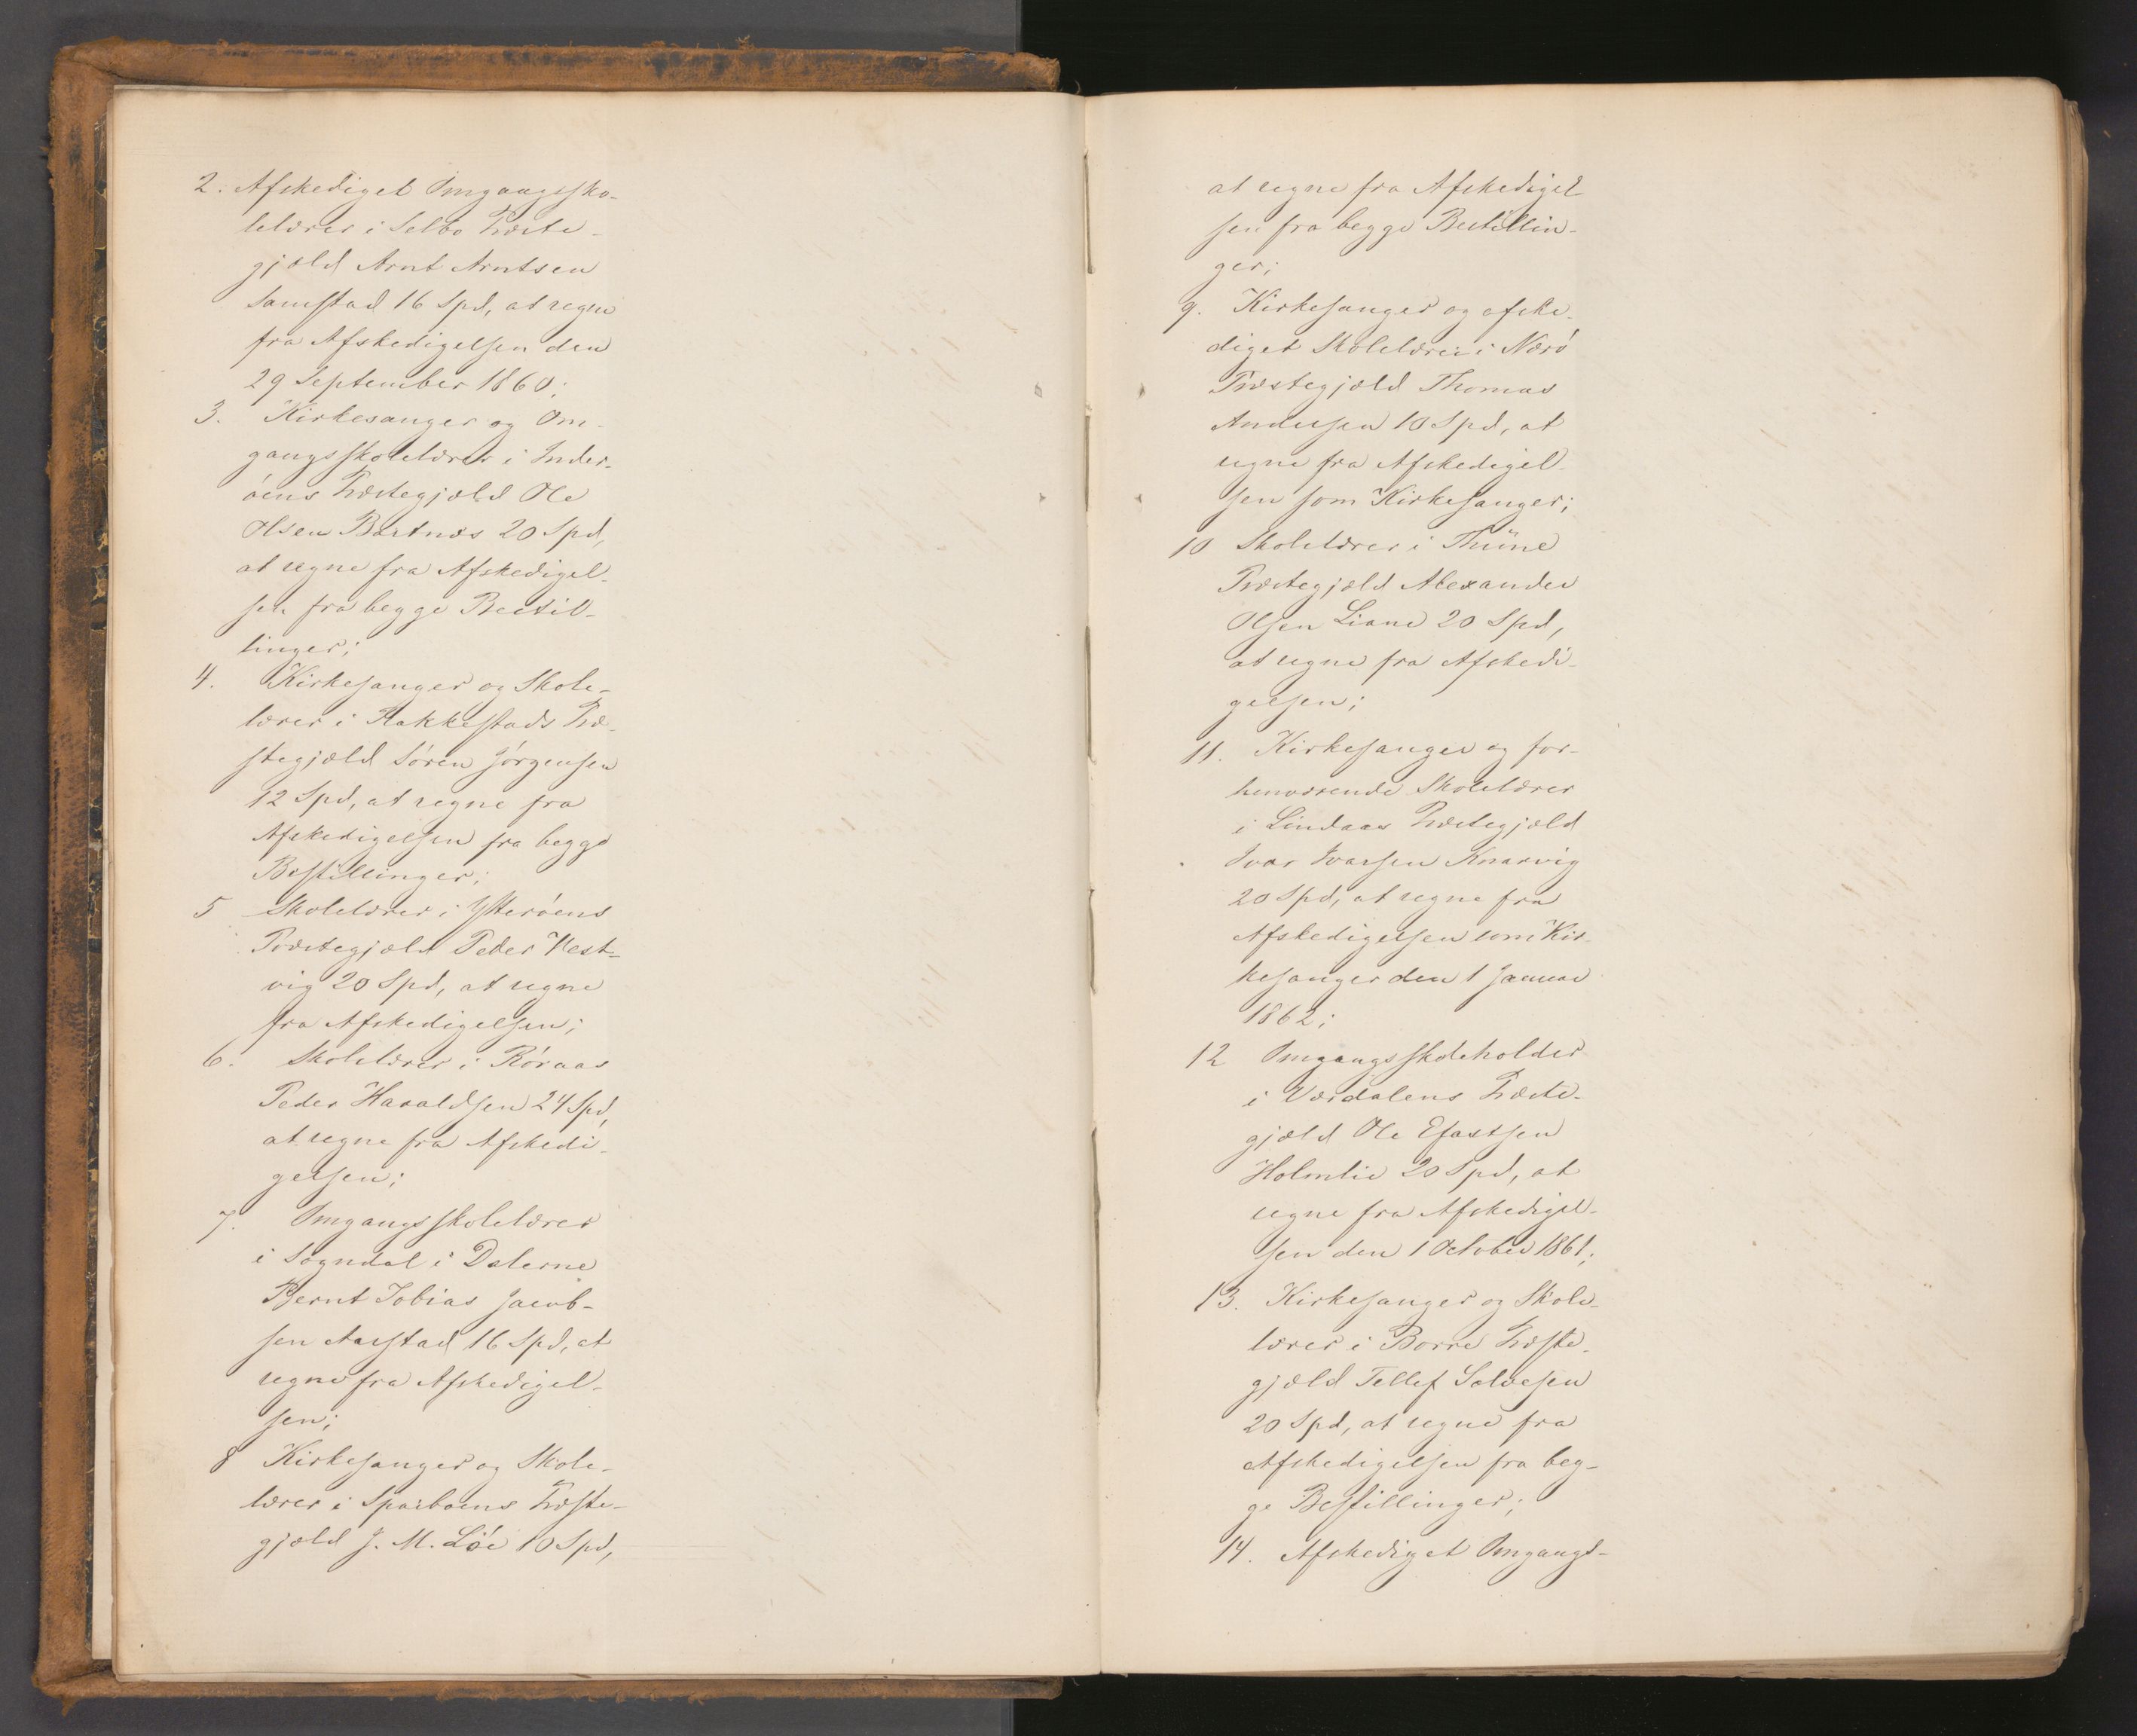 2. Afskediget Omgangssko-
lelærer i Selbo Præste-
gjæld Arnt Arntsen
Samstad 16 Spd, at regne
fra Afskedigelsen den
29 September 1860;
3. Kirkesanger og Om-
gangsskolelærer i Inder-
øens Præstegjæld Ole
Olsen Bartnæs 20 Spd,
at regne fra Afskedigel-
sen fra begge Bestil-
linger;
4. Kirkesanger og Skole-
lærer i Rakkestads Præ-
stegjæld Søren Jørgensen
12 Spd, at regne fra
Afskedigelsen fra begge
Bestillinger;
5 Skolelærer i Ytterøens
Præstegjæld Peder Hest-
vig 20 Spd, at regne
fra Afskedigelsen;
6. Skolelærer i Røraas
Peder Haraldsen 24 Spd,
at regne fra Afskedi-
gelsen;
7. Omgangsskolelærer
i Sogndal i Dalerne
Bernt Tobias Jacob-
sen Aarstad 16 Spd, at
regne fra Afskedigel-
sen;
8 Kirkesanger og Skole-
lærer i Sparboens Præste-
gjæld J. M. Löe 10 Spd,
at regne fra Afskedigel
sen fra begge Bestillin-
ger;
9. Kirkesanger og afske-
diget Skolelærer i Nærø
Præstegjæld Thomas
Andersen 10 Spd, at
regne fra Afskedigel-
sen som Kirkesanger;
10 Skolelærer i Thüne
Præstegjæld Alexander
Olsen Liane 20 Spd,
at regne fra Afskedi-
gelsen;
11. Kirkesanger og for-
henværende Skolelærer
i Lindaas Præstegjæld
Ivar Ivarsen Knarvig
20 Spd, at regne fra
Afskedigelsen som Kir-
kesanger den 1 Januar
1862;
12 Omgangsskoleholder
i Værdalens Præste-
gjæld Ole Efastsen
Holmlie 20 Spd, at
regne fra Afskedigel-
sen den 1 October 1861;
13. Kirkesanger og Skole-
lærer i Borre Præste-
gjæld Tellef Solvesen
20 Spd, at regne fra
Afskedigelsen fra beg-
ge Bestillinger;
14. Afskediget Omgangs-